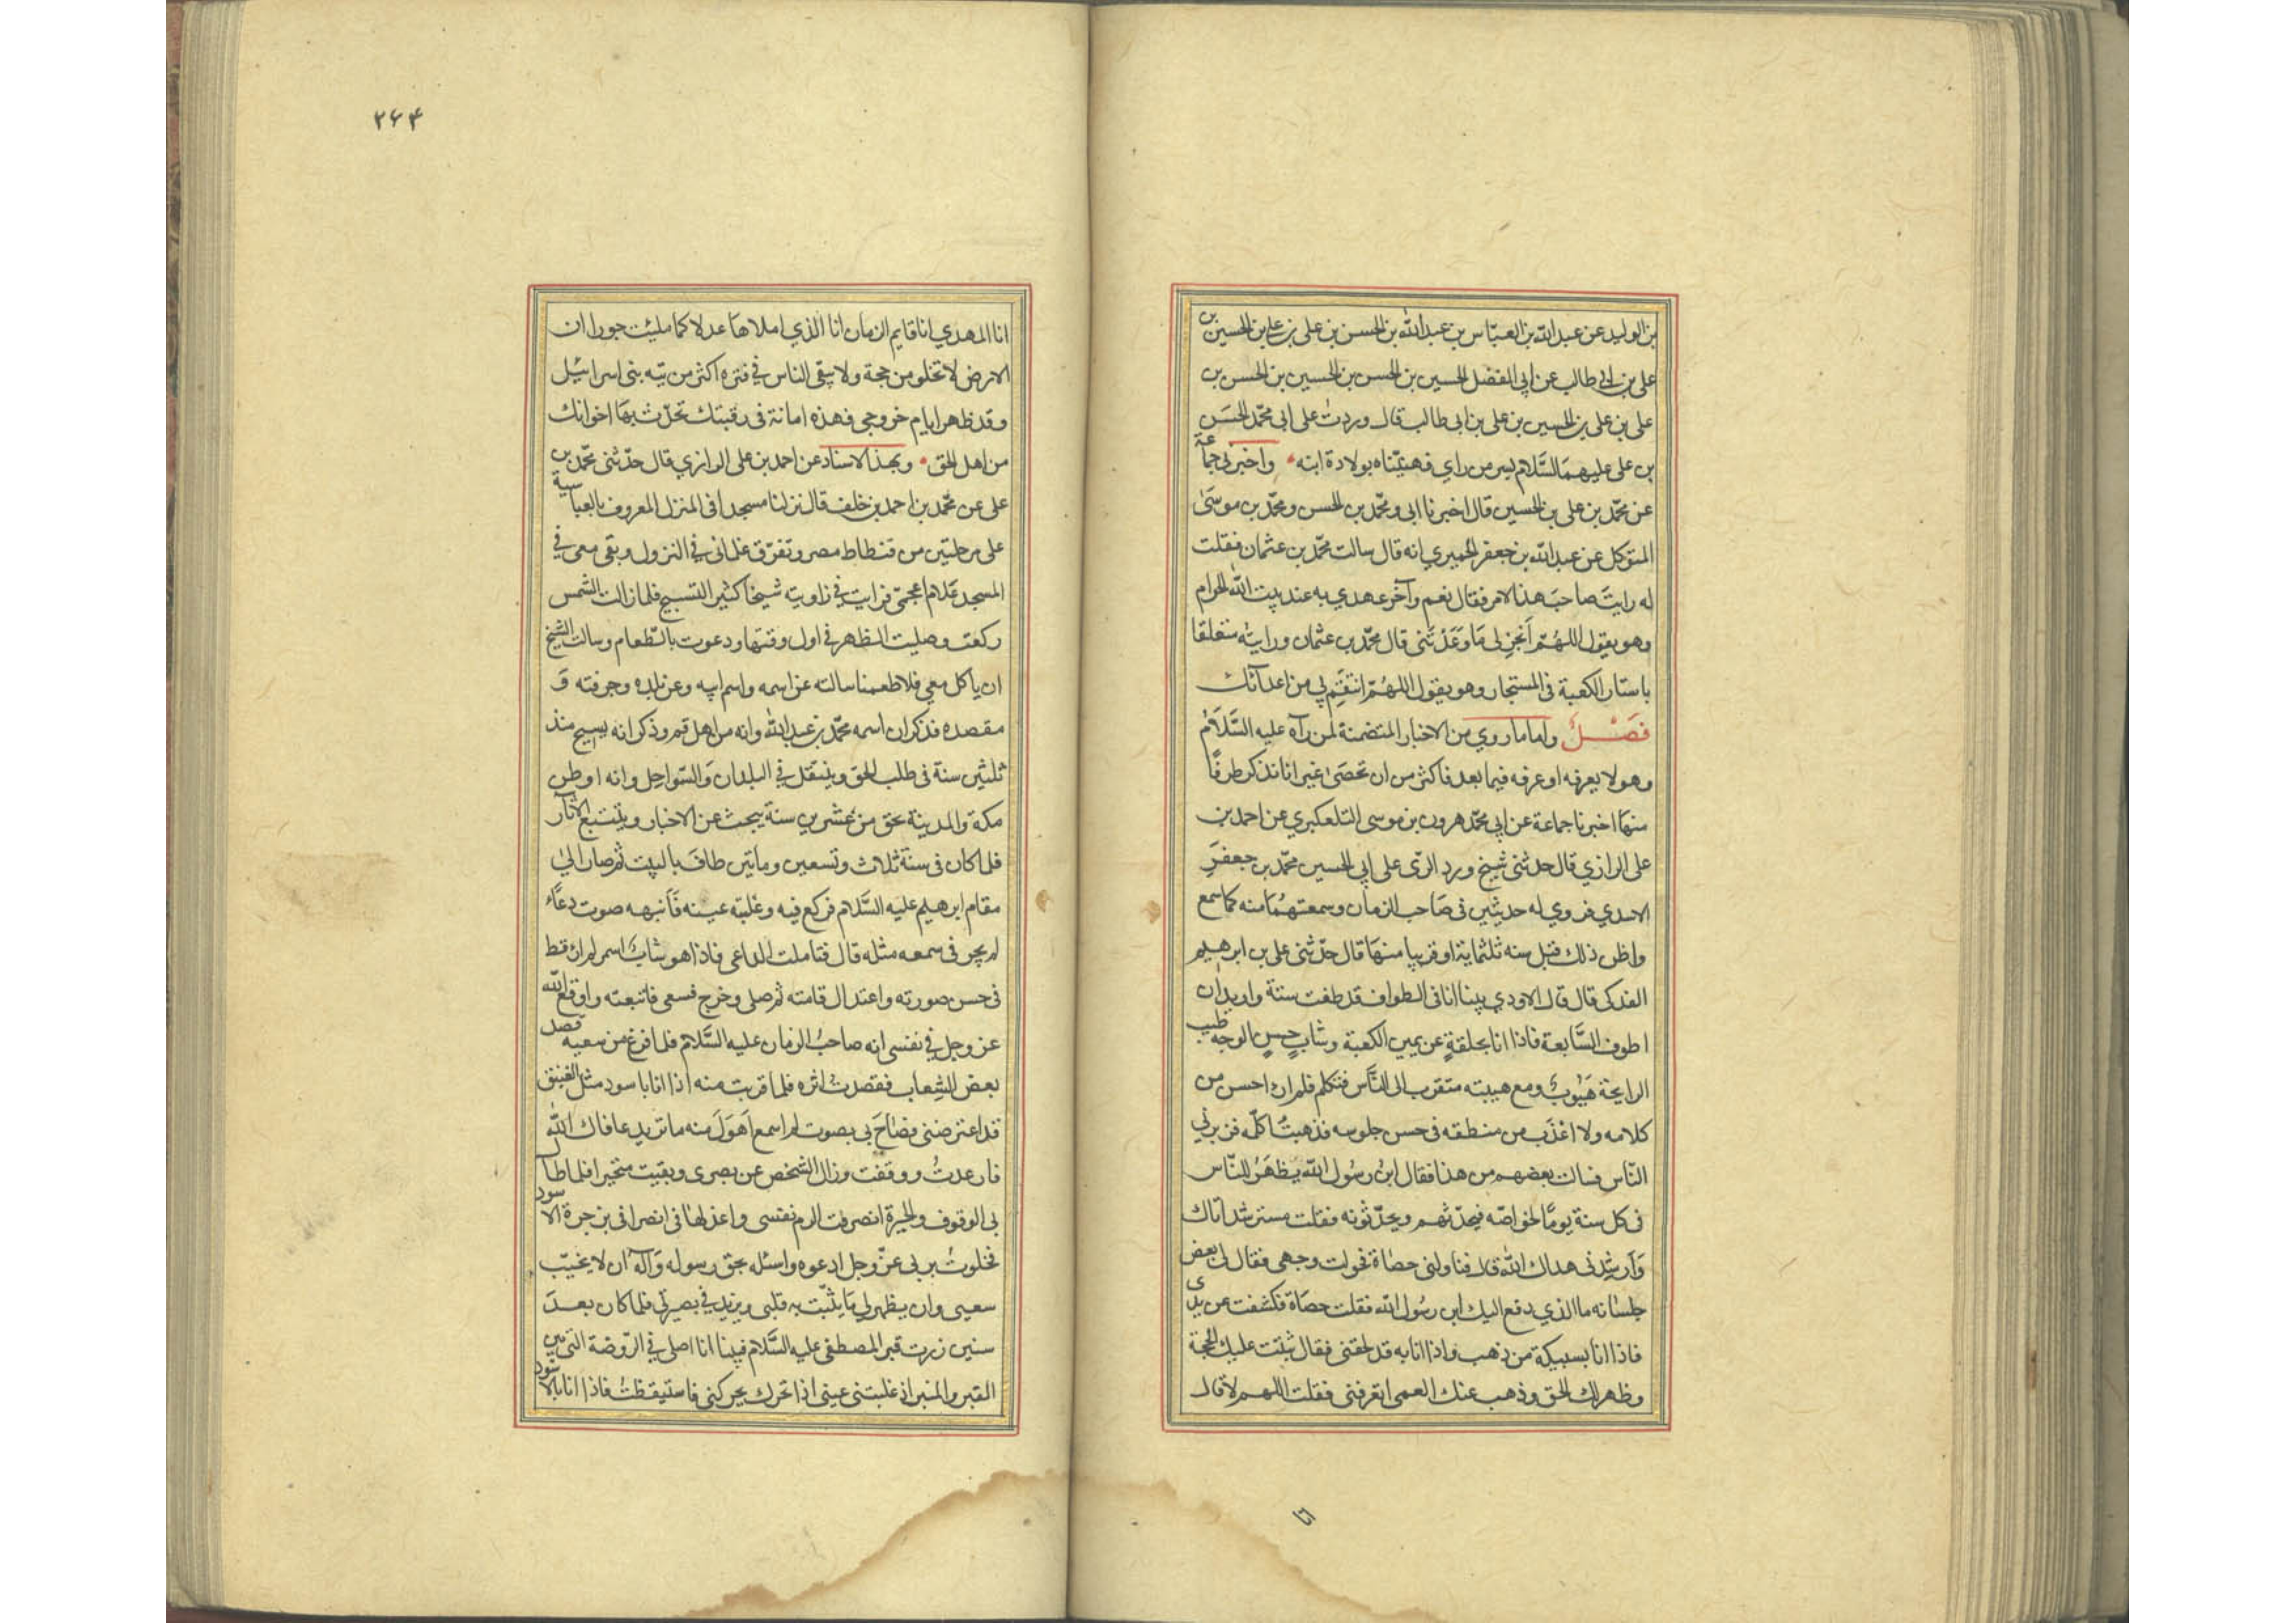 بن الوليد عن عبدالله بن العباس بن عبدالله بن الحسن بن على بن على بن الحسين بن
على بن ابي طالب عن ابي الفضل الحسين بن الحسن بن الحسين بن الحسن بن
على بن على بن الحسين بن على بن ابى طالب قال وردت على ابى محمّد الحسَن
بن على عليهمَا السَّلام بسر من راي فهنيّتناه بولادة ابنه واخبرني جماعة
عن محمّد بن على بن الحسين قال اخبرنا ابى ومحمّد بن الحسن ومحمّد بن موسَىٰ
المتوكل عن عبدالله بن جعفر الحميري انه قال سالت محمّد بن عثمان فقلت
له رايتَ صاحبَ هذا الامر فقال نعم وآخر عهدي به عند بيت الله الحرام
وهو يقول اللهُمّ اَنجز لى مَا وَعَدْتَنى قال محمّد بن عثمان ورايته متعلقا
باستار الكعبة فى المستجار وهو يقول اللهُمّ انتَقِم لي من اعدآئك
فصَـــل واما ما روي من الاخبار المتضمنة لمن رآه عليه السَّلَام
وهو لا يعرفه او عرفه فيما بعد فاكثر من ان تحصَىٰ غير انا نذكر طرفًا
منهَا اخبرنا جماعة عن ابي محمّد هرون بن موسى التلعكبري عن احمد بن
على الرازي قال حدثنى شيخ ورد الرّى على ابي الحسين محمّد بن جعفرَ
الاسدي فروي له حديثين فى صَاحب الزمان وسمعتهُمَا منه كما سمع
واظن ذلك قبل سنه ثلثماية او قريبا منهَا قال حدّثنى على بن ابرهيم
الفدكى قال قال الاودي بينا انا فى الطواف قد طفت ستة واريد ان
اطوف السَّابعة فاذا انا بحلقةٍ عن يمين الكعبة وشابٍ حسنِ الوجه طيب
الرايحة هَيُوبٌ ومع هيبته متقرب الى النَّاس فتكلم فلم ار احسن من
كلامه ولا اعْذَب من منطقه فى حسن جلوسه فذهبتُ اكلّمه فزبرني
النّاس فسالت بعضهم من هذا فقال ابنُ رسُول الله يظهَرُ للنّاس
فى كل سنة يومًا لخواصّه فيحدّثهم ويحدّثونه فقلت مسترشد اتاك
وَارشِدنى هداك الله قال فناولنى حصَاة فحولت وجهى فقال لى بعض
جلسَائه ما الذي دفع اليك ابن رسُول الله فقلت حصَاة فكشفت عن يدى
فاذا انا بسبيكة من ذهب واذا انا به قد لحقنى فقال ثبتت عليك الحجة
وظهر لك الحق وذهب عنك العمى اتعرفنى فقلت اللهم لا قال
۲۶۴
انا المهدي انا قايم الزمان انا الذي املاهَا عدلا كما ملئت جورا ان
الارض لا تخلو من حجة ولا يبقى الناس فى فترة اكثر من تيه بنى اسرائيل
وقد ظهر ايام خروجى فهذه امانة فى رقبتك تحدّث بهَا اخوانك
من اهل الحق وبهذا الاسناد عن احمد بن على الرازي قال حدّثنى محمّد بن
على عن محمّد بن احمد بن خلف قال نزلنا مسجدا فى المنزل المعروف بالعباسية
على مرحلتين من فسطاط مصر وتفرّق غلمانى فى النزول وبقى معى في
المسجد غلام اعجمىّ فرايت فى زاويته شيخا كثير التسبيح فلما زالت الشمس
ركعت وصليت الظهر فى اول وقتها ودعوت بالطّعام وسالت الشيخ
ان ياكل معي فلما طعمنا سالته عن اسمه واسم ابيه وعن بلده وحرفته وَ
مقصده فذكر ان اسمه محمّد بن عبدالله وانه من اهل قم وذكر انه يسيح منذ
ثلثين سنة فى طلب الحق وينتقل فى البلدان وَالسّواحل وانه اوطن
مكة والمدينة نحو من عشرين سنة يبحث عن الاخبار ويتتبع الآثار
فلما كان فى سنة ثلاث وتسعين ومايتين طافَ بالبيت ثم صار الىٰ
مقام ابرهيم عليه السَّلام فركع فيه وغلبته عينه فَاَنبهه صوت دعَاء
لم يجر فى سمعه مثله قال فتاملت الداعى فاذا هو شابٌ اسمر لم ار قط
فى حسن صورته واعتدال قامته ثم صلى وخرج فسعى فاتبعته واوقع الله
عز وجل فى نفسى انه صاحبُ الزمان عليه السَّلام فلما فرغ من سعيه قصد
بعض الشِعاب فقصدت اثره فلما قربت منه اذا انا باسود مثل الفنيق
قد اعترضنى فصَاحَ بى بصوت لم اسمع اَهوَلَ منه ما تريد عافاك الله
فارعدتُ ووقفت وزال الشخص عن بصرى وبقيت متحيرا فلما طال
بى الوقوف والحيرة انصرفت الوم نفسى واعذلهَا فى انصرافى بزجرة الاسود
فخلوتُ بربى عزّ وجل ادعوه واسئله بحق رسوله وَآله ان لا يخيّب
سعيى وان يظهر لى مَا يثبّت به قلبى ويزيد فى بصرى فلما كان بعدَ
سنين زرت قبر المصطفى عليه السَّلام فبينا انا اصلى فى الرّوضة التى بين
القبر والمنبر اذ غلبتنى عينى اذا تحرك يحركنى فاستيقظتُ فاذا انا بالاسود